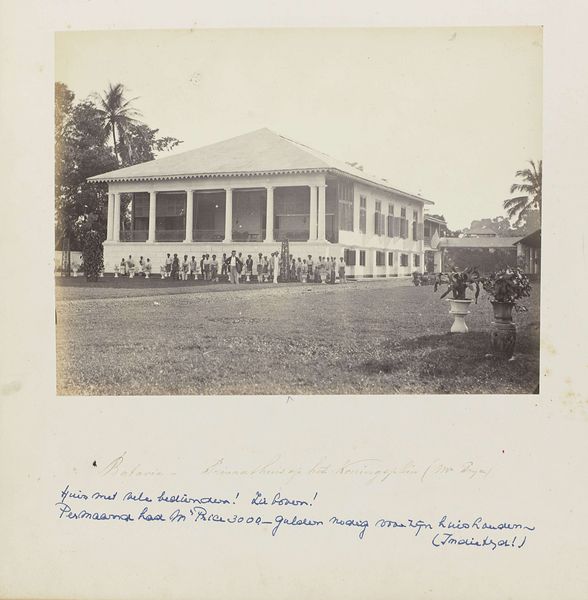 Batavia - Privaathuis op het Koningsplein (Mr Pryce)
Huis met vele bedienden! Zie boven!
Per maand had Mr Price 3000 - gulden nodig voor zijn huishouden -
(Indietijd!)